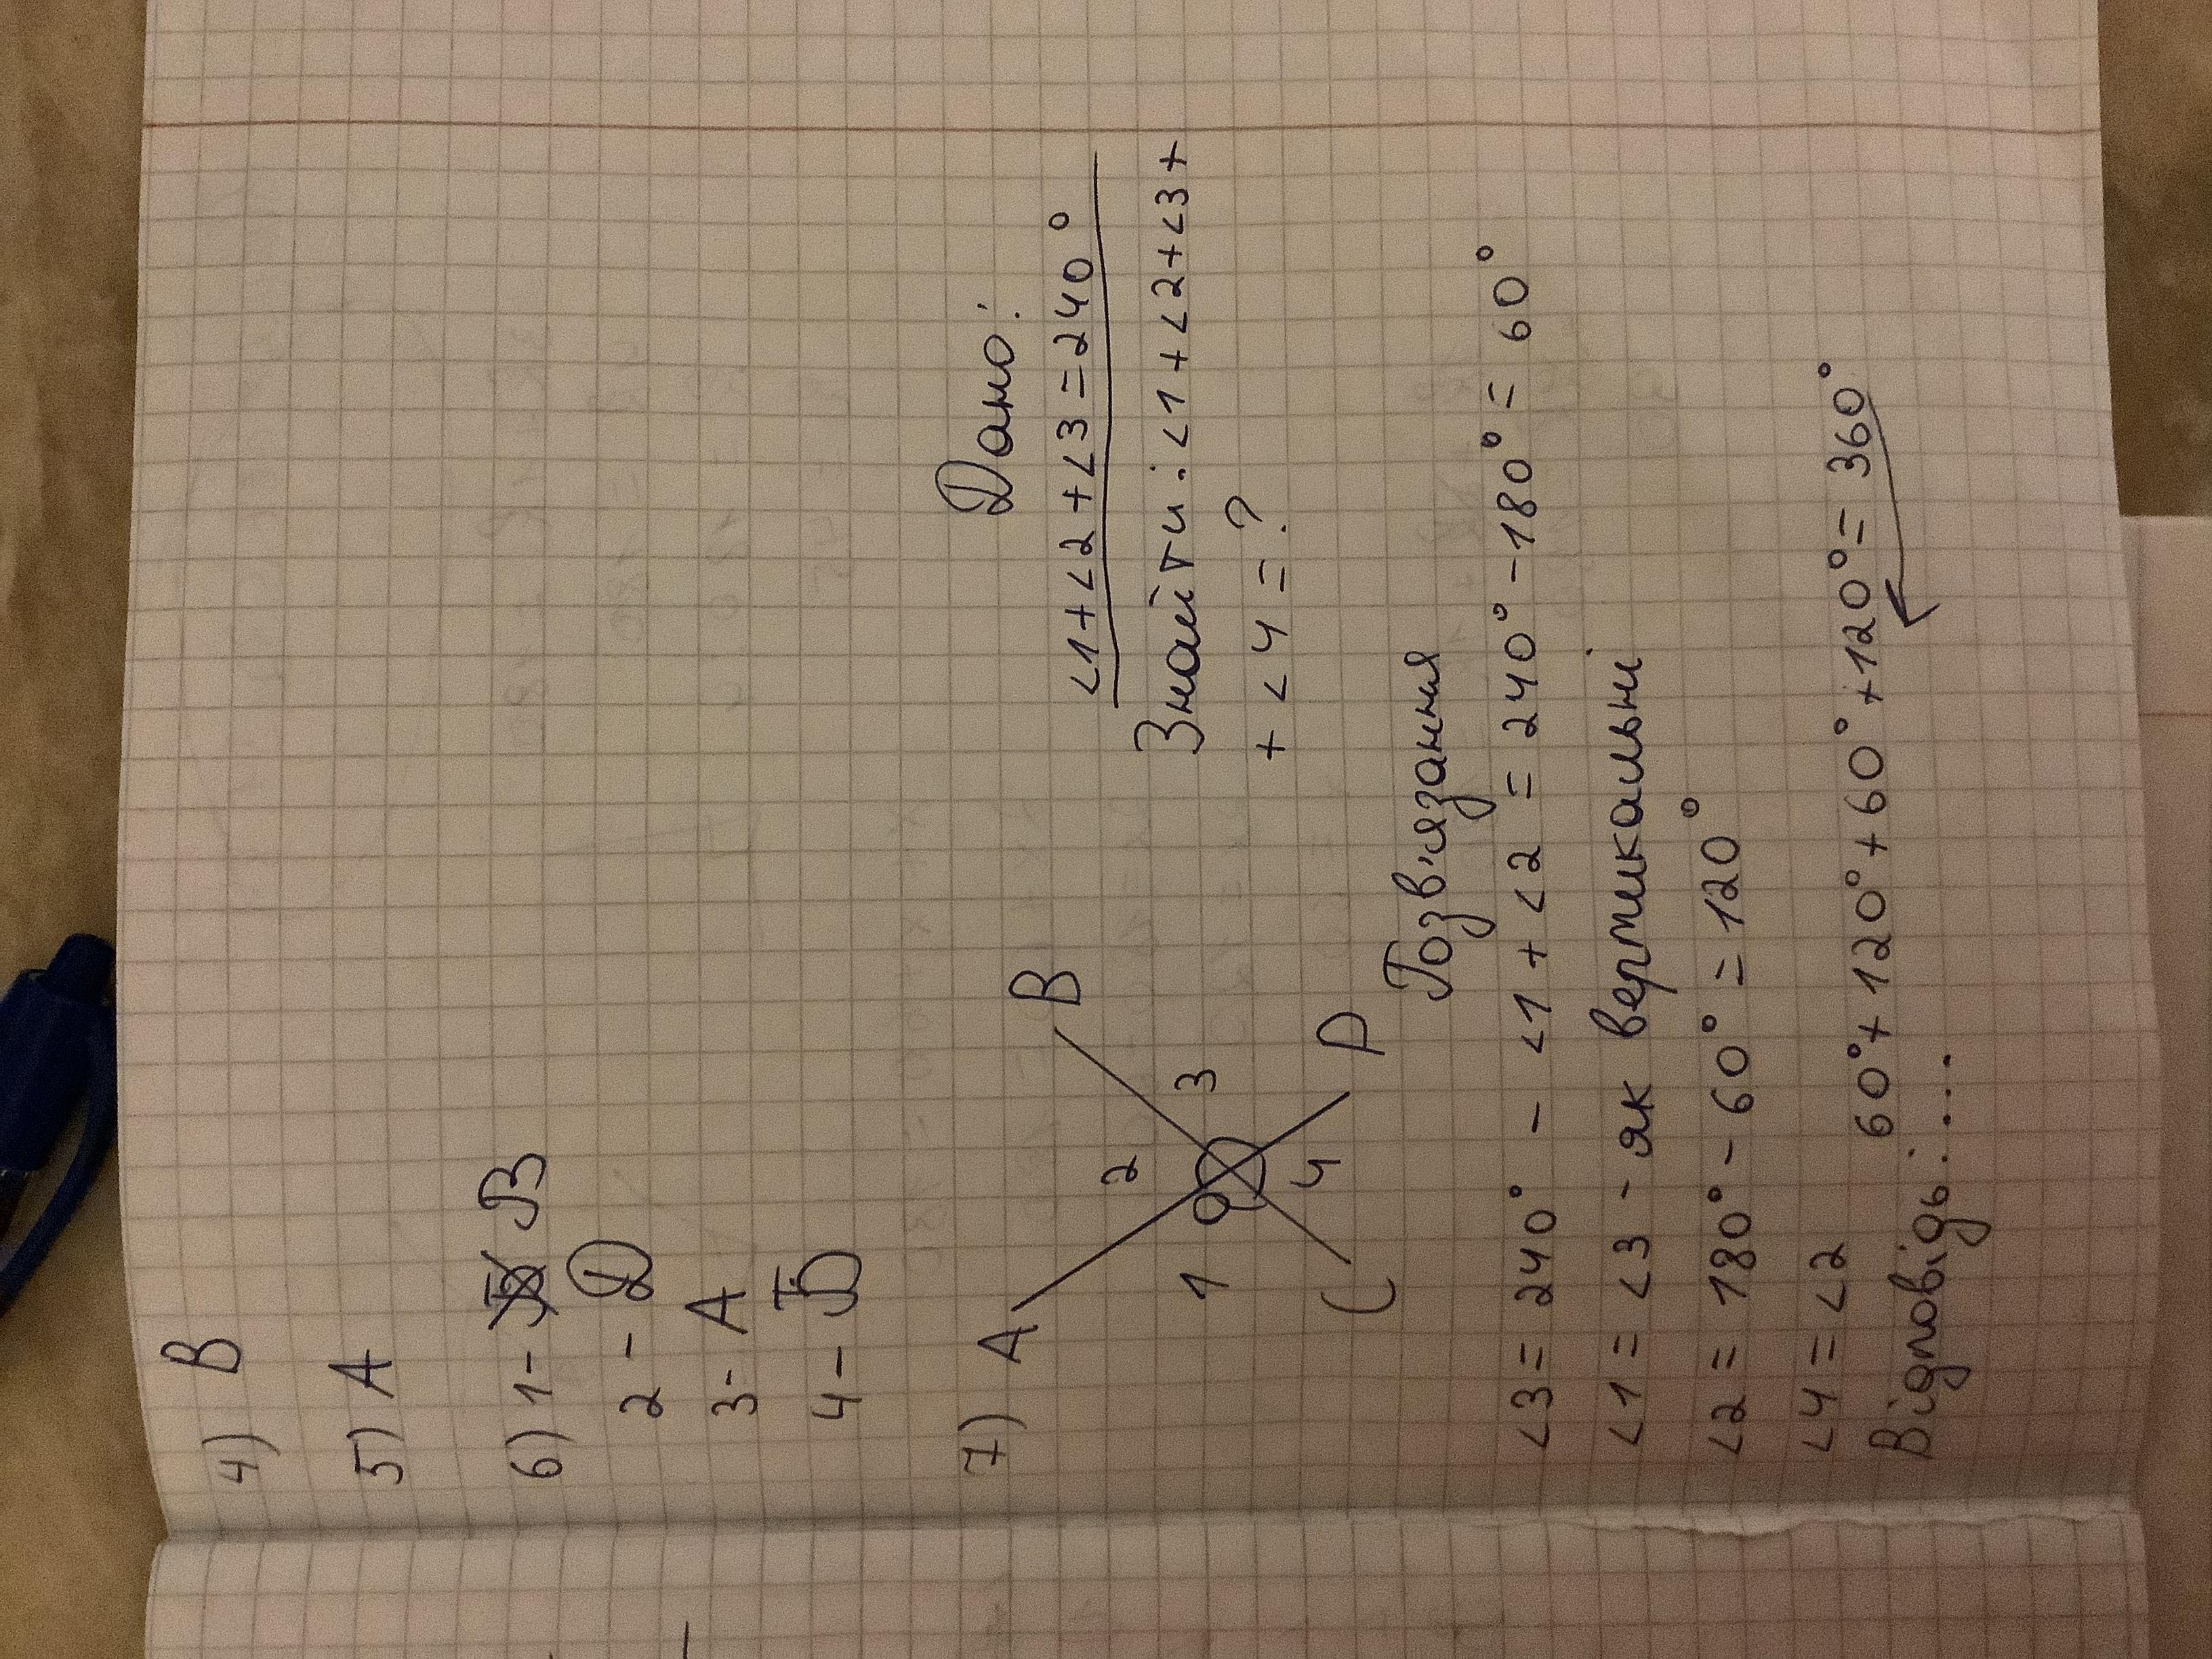 4) В
5) А
6) 1- В
2 - Д
3- А
4 - Б
7) А В Дано:
<1+<2+<3=240°
2 3
1 О 4
С D
Знайти: <1+<2+<3+
+ <4 = ?
Розв'язання
<3 = 240° - <1 + <2 = 240° - 180° = 60°
<1 = <3 - як вертикальні
<2 = 180° - 60° = 120°
<4 = <2
60°+120°+60°+120°= 360°
Відповідь: ...